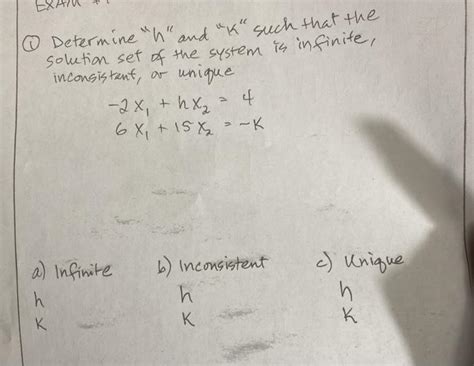 EXAM #1
① Determine "h" and "K" such that the
solution set of the system is infinite,
inconsistent, or unique
-2x₁ + hx₂ = 4
6x₁ + 15x₂ = -K
a) Infinite b) Inconsistent c) Unique
h h h
K K K